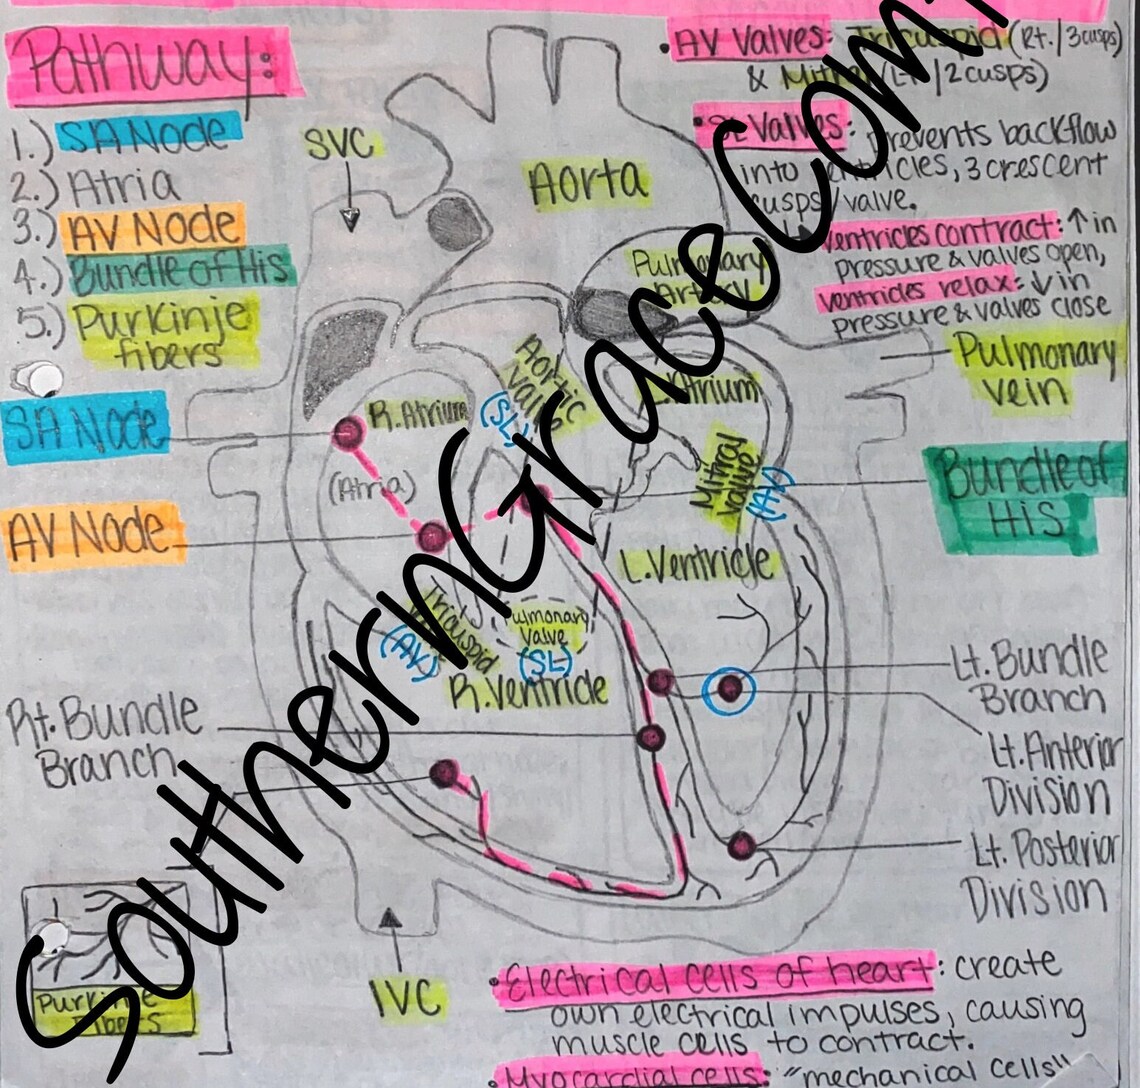 Pathway:
1.) SA Node
2.) Atria
3.) AV Node
4.) Bundle of His
5.) Purkinje
fibers
• AV Valves: Tricuspid (Rt./3cusps)
& Mitral (Lt./2cusps)
• SL Valves: prevents backflow
into ventricles, 3 crescent
cusps/valve.
ventricles contract: ↑ in
pressure & valves open,
ventricles relax: ↓ in
pressure & valves close
SVC
Aorta
Pulmonary
Artery
Pulmonary
vein
SA Node
R. Atrium
Aortic
Valve
(SL)
L. Atrium
(Atria)
Mitral
Valve
(AV)
Bundle of
His
AV Node
L. Ventricle
Tricuspid
(AV)
Pulmonary
Valve
(SL)
R. Ventricle
Rt. Bundle
Branch
Lt. Bundle
Branch
Lt. Anterior
Division
Lt. Posterior
Division
Purkinje
Fibers
IVC
• Electrical cells of heart: create
own electrical impulses, causing
muscle cells to contract.
• Myocardial cells: "mechanical cells"
SouthernGrace.Com